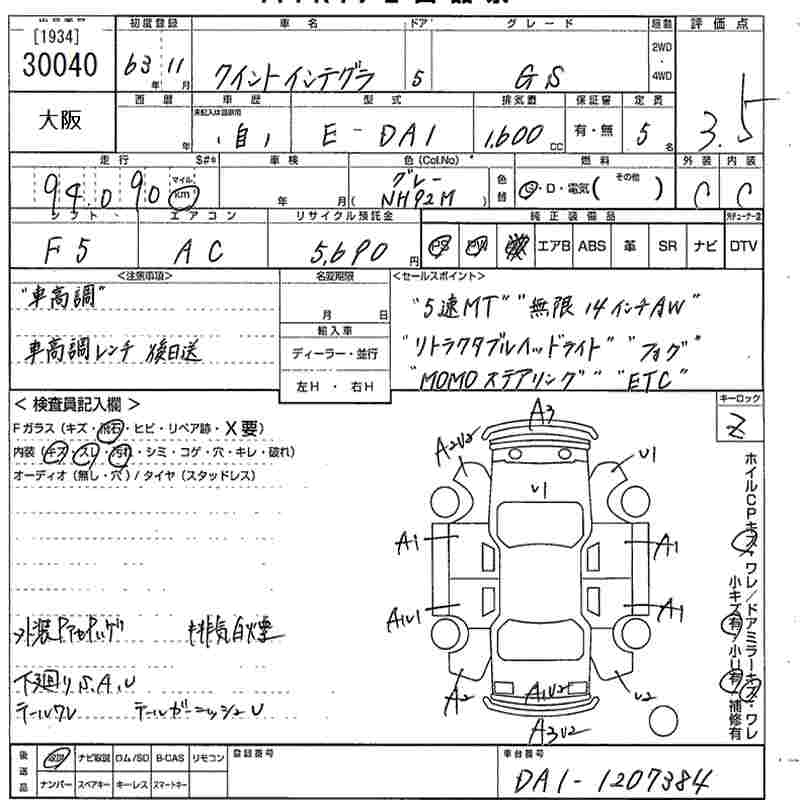 [1934]
30040
初度登録 車名 ドア グレード 駆動 評価点
63年11月 クイントインテグラ 5 GS 2WD・4WD 3.5
大阪
西暦 車歴 型式 排気量 保証書 定員
年 未記入は自家用 自 E-DA1 1,600cc 有・無 5名
走行 S#* 車検 色(Col.No) 燃料 外装 内装
94,090 マイル km 年 月 グレー 色替 G・D・電気( その他 ) C C
(NH92M)
シフト エアコン リサイクル預託金 純正装備品
F5 AC 5,690円 PS PW エアB ABS 革 SR ナビ DTV
<注意事項> 名変期限 <セールスポイント>
"車高調" 月 日 "5速MT" "無限 14インチAW"
輸入車
車高調レンチ 後日送 ディーラー・並行 "リトラクタブルヘッドライト" "フォグ"
左H・右H "MOMOステアリング" "ETC"
<検査員記入欄> キーロック
Fガラス(キズ・飛石・ヒビ・リペア跡・X要)
内装(キズ・スレ・汚れ・シミ・コゲ・穴・キレ・破れ)
オーディオ(無し・穴)/タイヤ(スタッドレス)
A3
A2U2
U1
U1
A1
A1
A1U1
A1
A2
A1U2
U2
A3U2
ホイルCPキズ・ワレ/ドアミラーキズ・ワレ
小キズ有/小U有/補修有
排気白煙
下廻りS.A.U
テールワレ テールガーニッシュU
後送品 取説 ナビ取説 ロム/SD B-CAS リモコン 登録番号 車台番号
ナンバー スペアキー キーレス スマートキー DA1-1207384